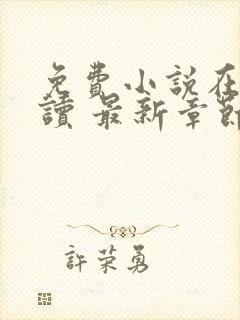 免費小說在
讀 最新章節
許荣勇